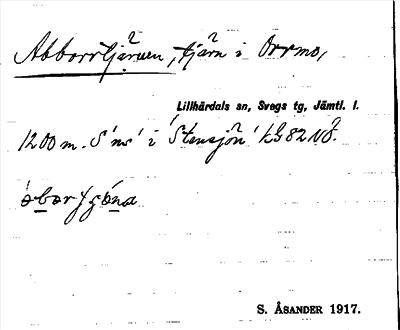 Abborrtjärnen, tjärn i Orrmo,
Lillhärdals sn, Svegs tg, Jämtl. l.
1200 m. S 'ns' i 'Stensjön' kG82NÖ.
S. ÅSANDER 1917.